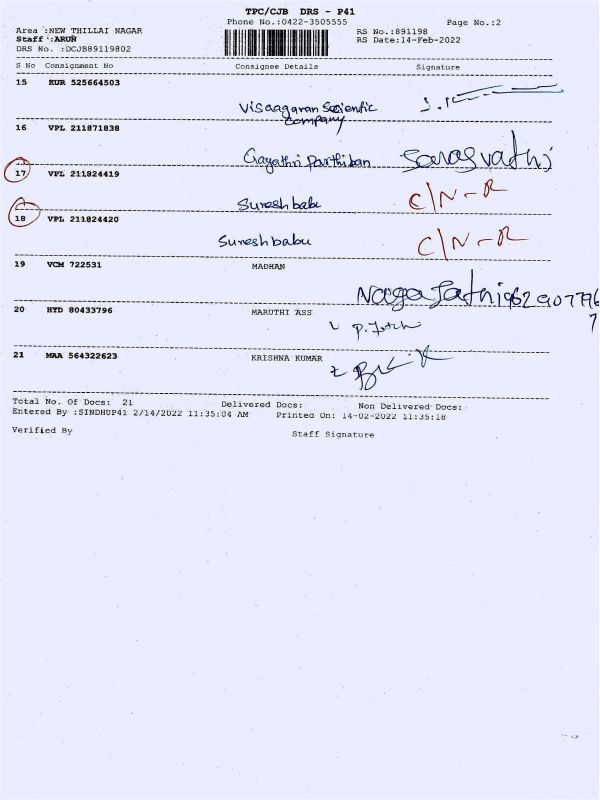 TPC/CJB DRS - P41
Phone No.:0422-3505555 Page No.:2
Area :NEW THILLAI NAGAR RS No.:891198
Staff :ARUN RS Date:14-Feb-2022
DRS No. :DCJB89119802
S No Consignment No Consignee Details Signature
15 KUR 525664503
Visaagaran Scientific
Company
16 VPL 211871838
Gayathri Parthiban Sarasvathi
17 VPL 211824419
Sureshbabu C/N-R
18 VPL 211824420
Sureshbabu C/N-R
19 VCM 722531 MADHAN
Naga Jathi
20 HYD 80433796 MARUTHI ASS
21 MAA 564322623 KRISHNA KUMAR
Total No. Of Docs: 21 Delivered Docs: Non Delivered Docs:
Entered By :SINDHUP41 2/14/2022 11:35:04 AM Printed On: 14-02-2022 11:35:18
Verified By Staff Signature